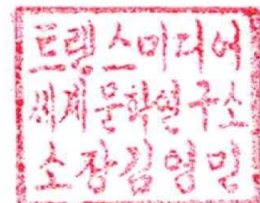 트랜스미디어
세계문학연구소
소장김영민